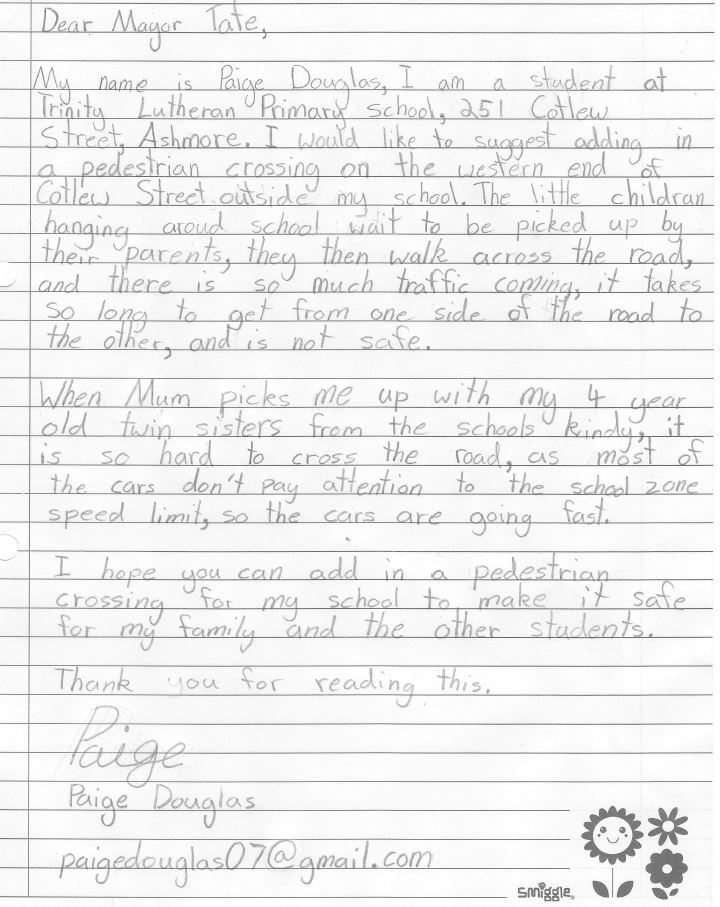 Dear Mayor Tate,
My name is Paige Douglas, I am a student at
Trinity Lutheran Primary school, 251 Cotlew
Street, Ashmore. I would like to suggest adding in
a pedestrian crossing on the western end of
Cotlew Street outside my school. The little childran
hanging aroud school wait to be picked up by
their parents, they then walk across the road,
and there is so much traffic coming, it takes
so long to get from one side of the road to
the other, and is not safe.
When Mum picks me up with my 4 year
old twin sisters from the schools kindy, it
is so hard to cross the road, as most of
the cars don't pay attention to the school zone
speed limit, so the cars are going fast.
I hope you can add in a pedestrian
crossing for my school to make it safe
for my family and the other students.
Thank you for reading this.
Paige
Paige Douglas
paigedouglas07@gmail.com
smiggle